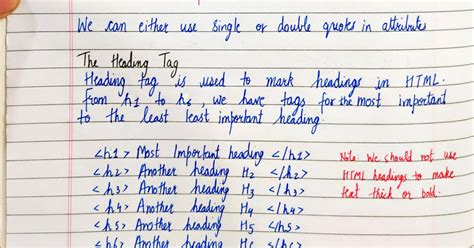 We can either use single or double quotes in attributes
The Heading Tag
Heading tag is used to mark headings in HTML.
From h1 to h6, we have tags for the most important
to the least least important heading.
<h1> Most Important heading </h1>
<h2> Another heading H2 </h2>
<h3> Another heading H3 </h3>
<h4> Another heading H4 </h4>
<h5> Another heading H5 </h5>
<h6> Another heading H6 </h6>
Note: We should not use
HTML headings to make
text thick or bold.